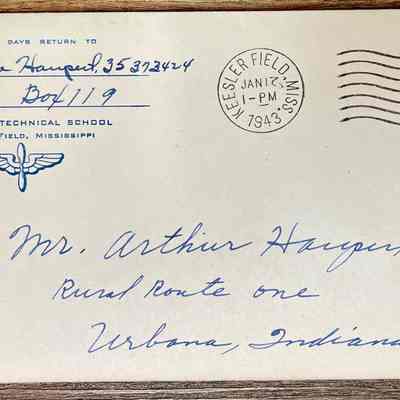 DAYS RETURN TO
Haupert, 35373424
Box 119
TECHNICAL SCHOOL
FIELD, MISSISSIPPI
KEESLER FIELD, MISS.
JAN 12
1-PM
1943
Mr. Arthur Hauper
Rural Route one
Urbana, Indiana